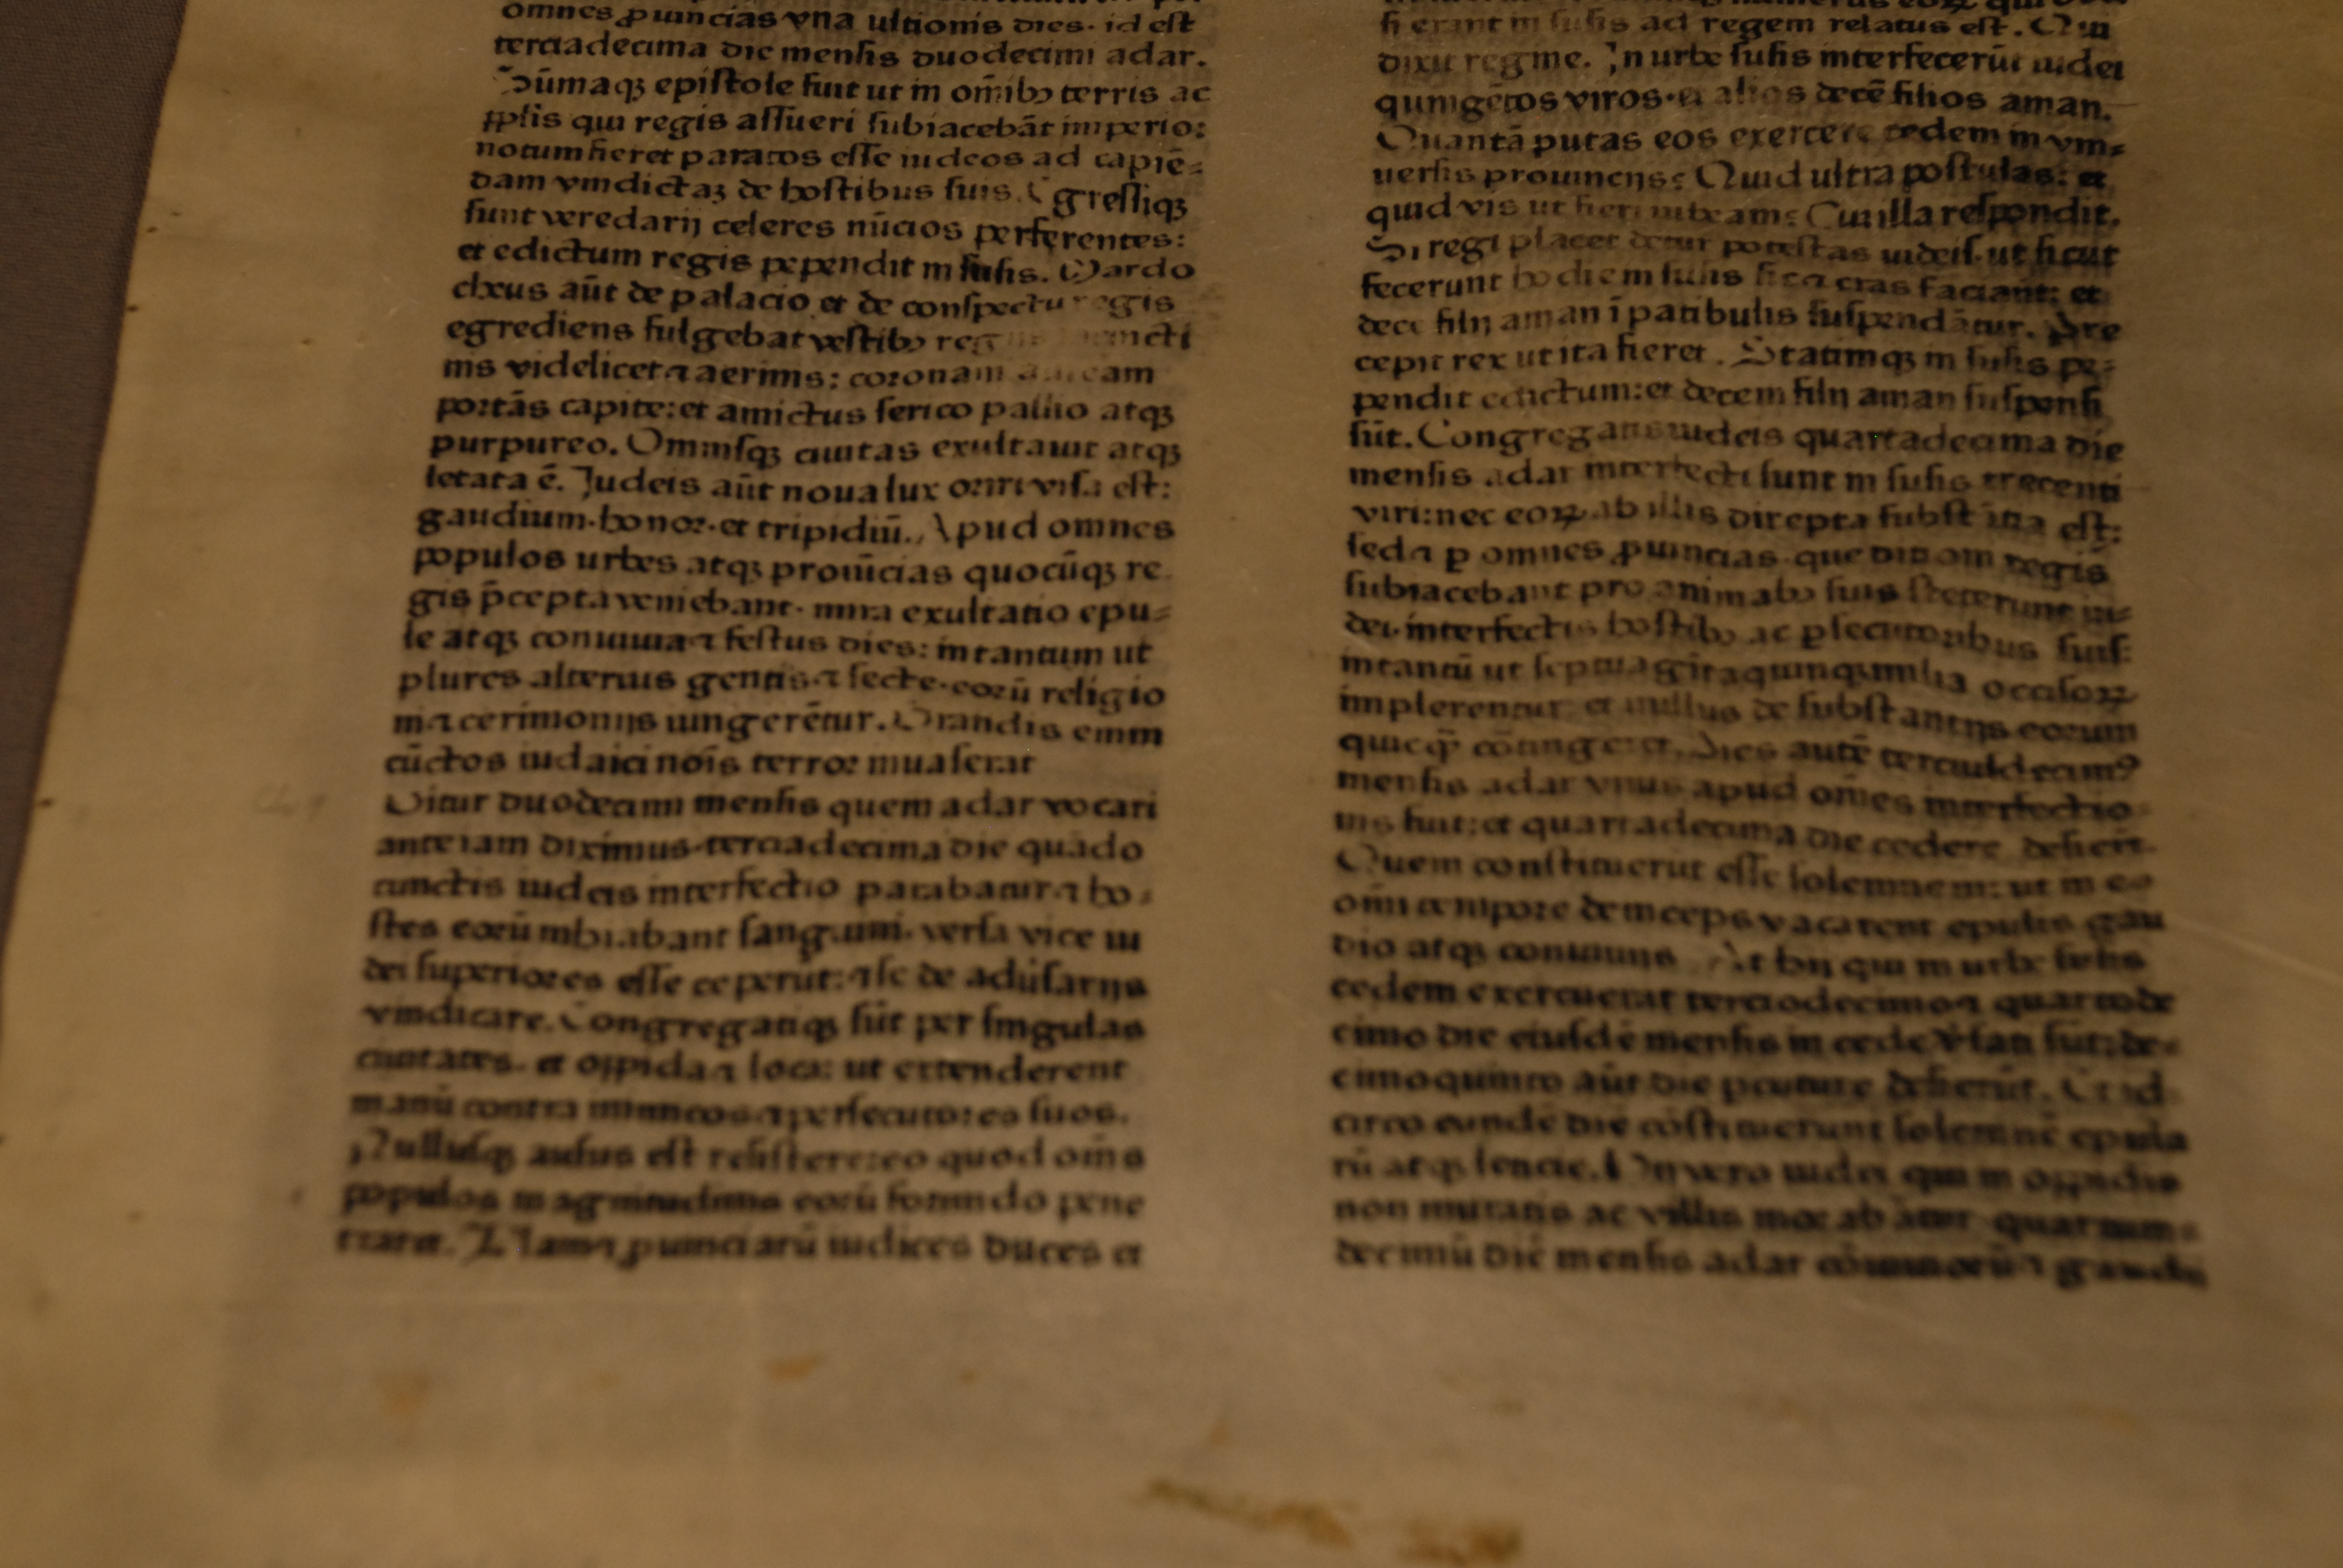 omnes ꝓuincias vna ultionis dies. id est
terciadecima die mensis duodecimi adar.
Sūmaqꝫ epistole fuit ut in om̄ibꝰ terris ac
pplis qui regis assueri subiacebāt imperio:
notum fieret paratos esse iudeos ad capiē=
dam vindictaꝫ de hostibus suis. Egressiqꝫ
sunt veredarij celeres nūcios perferentes:
et edictum regis pependit in susis. Mardo
cheus aūt de palacio et de conspectu regis
egrediens fulgebat vestibꝰ
nis videlicet ⁊ aerinis: coronam auream
portās capite: et amictus serico pallio atqꝫ
purpureo. Omnisqꝫ ciuitas exultauit atqꝫ
letata ē. Judeis aūt noua lux oriri visa est:
gaudium. honor. et tripidiū. Apud omnes
populos urbes atqꝫ prouīcias quocūqꝫ re
gis p̄cepta veniebant. mira exultatio epu=
le atqꝫ conuiuia ⁊ festus dies: in tantum ut
plures alterius gentis ⁊ secte. eorū religio
ni ⁊ cerimonijs iungerētur. Grandis enim
cūctos iudaici nōis terror inuaserat
Gitur duodecimi mensis quem adar vocari
ante iam diximus terciadecima die quādo
cunctis iudeis interfectio parabatur ⁊ ho=
stes eorū inhiabant sanguini. versa vice iu
dei superiores esse ceperūt: ⁊ se de adūsarijs
vindicare. Congregatiqꝫ sūt per singulas
ciuitates. et oppida ⁊ loca: ut extenderent
manū contra inimicos ⁊ persecutores suos.
Nullusqꝫ ausus est resistere: eo quod om̄s
populos magnitudinis eorū formido pene
traret. Nam ⁊ ꝓuinciarū iudices duces et
si erant in susis ad regem relatus est. Qui
dixit regine. In urbe susis interfecerūt iudei
quingētos viros. et alios decē filios aman.
Quantā putas eos exercere cedem in vni=
uersis prouincijs: Quid ultra postulas: et
quid vis ut fieri iubeam: Cui illa respondit.
Si regi placet detur potestas iudeis. ut sicut
fecerunt hodie in susis sic ⁊ cras faciant: et
decē filij aman ī patibulis suspendātur. Pre
cepit rex ut ita fieret. Statimqꝫ in susis pe=
pendit edictum: et decem filij aman suspensi
sūt. Congregatis iudeis quartadecima die
mensis adar interfecti sunt in susis trecenti
viri: nec eoꝝ ab illis direpta substātia est:
sed ⁊ ꝑ omnes ꝓuincias que dicioni regis
subiacebant pro animabꝰ suis steterunt iu=
dei. interfectis hostibꝰ ac ꝑsecutoribus suis:
in tantū ut septuagītaquinqꝫ milia occisoꝝ
implerentur. et nullus de substantijs eorum
quicqꝫ cōtingeret. Dies autē terciusdecimꝰ
mensis adar vnus apud om̄es interfectio=
nis fuit: et quartadecima die cedere desierūt.
Quem constituerūt esse solemnem: ut in eo
om̄i tempore deinceps vacarent epulis gau
dio atqꝫ conuiuijs. At hij qui in urbe susis
cedem exercuerāt terciodecimo ⁊ quartode
cimo die eiusdē mensis in cede v̄sati sūt: de=
cimoquinto aūt die percutere desierūt. Et id
circo eundē diē cōstituerunt solemnē epula
rū atqꝫ leticie. Hij vero iudei qui in oppidis
non muratis ac villis morabātur quartum=
decimū diē mensis adar cōuiuiorū ⁊ gaudij